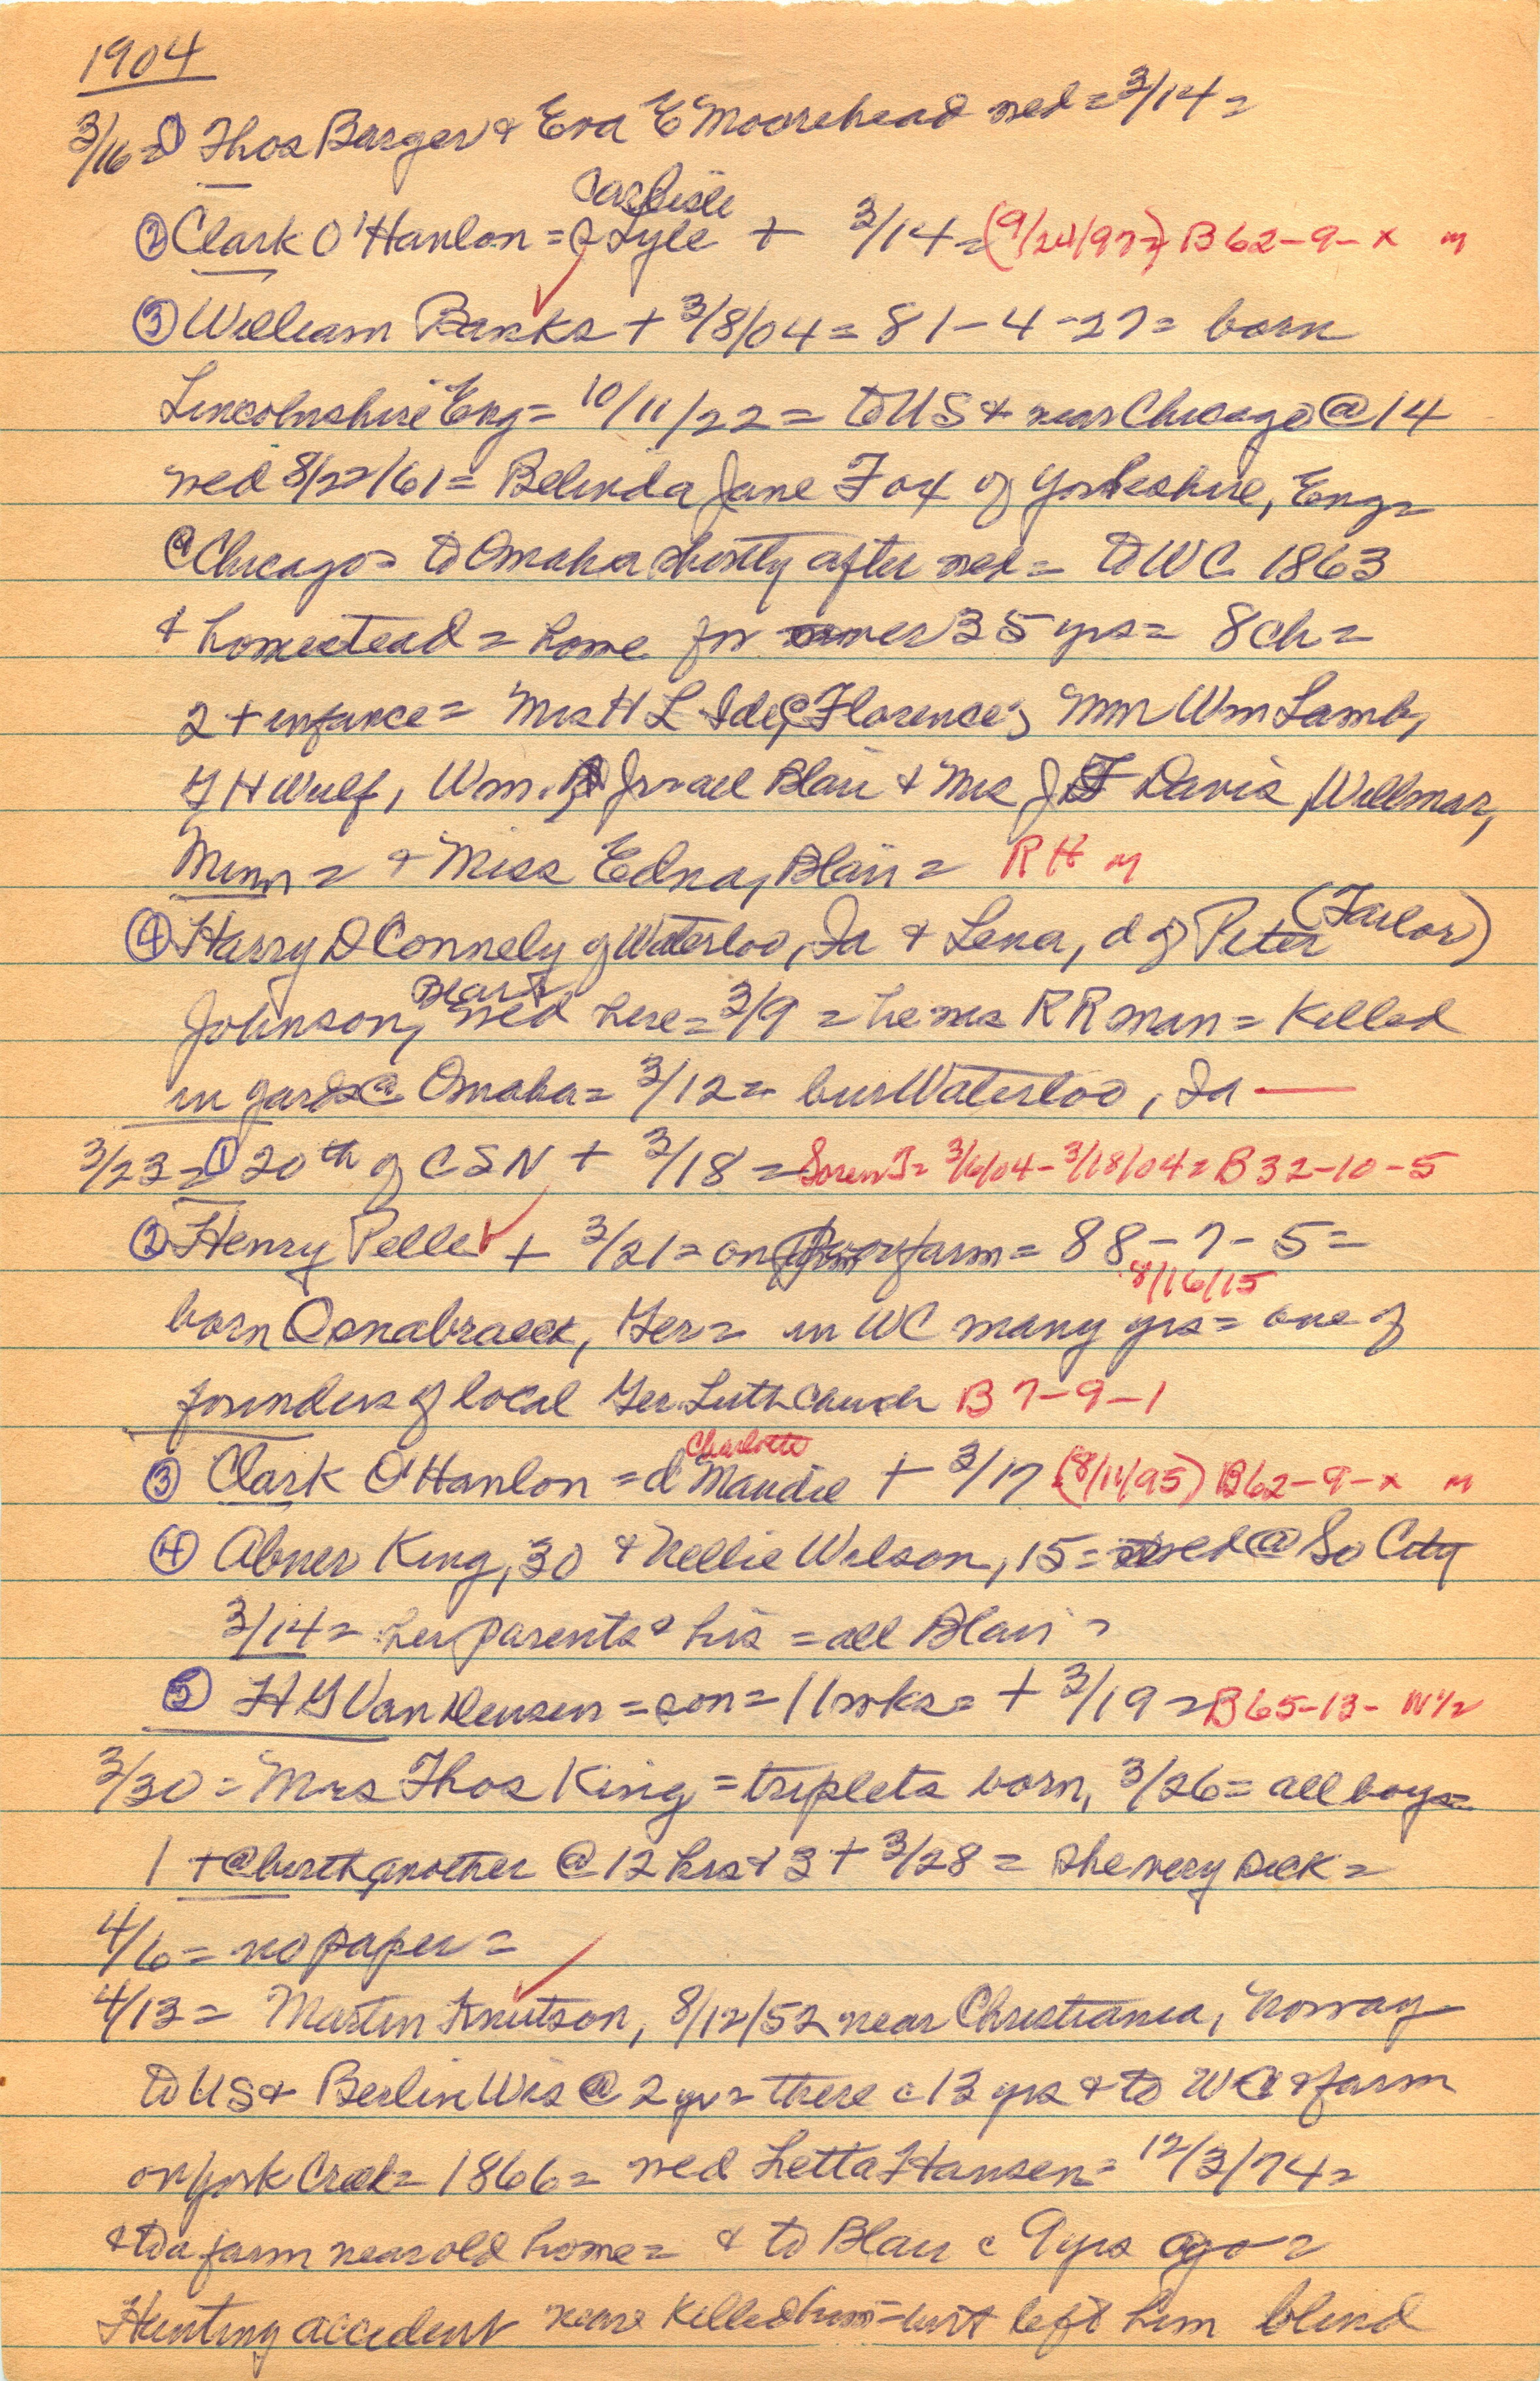 1904
3/16 = ① Thos Barger & Eva E Moorehead wed = 3/14 =
Carlisle
② Clark O'Hanlon = Lyle + 3/14 = (9/24/97) B62-9-x m
③ William Banks + 3/8/04 = 81-4-27 = born
Lincolnshire Eng = 10/11/22 = to US & near Chicago @ 14
wed 8/22/61 = Belinda Jane Fox of Yorkeshire, Eng =
@ Chicago = to Omaha shortly after wed = to WC 1863
& homestead = home for over 35 yrs = 8 ch =
2 + infance = Mrs H L Ide, Florence; Mm Wm Lamb,
G H Wulf, Wm. Israel Blair & Mrs J F Davis, Willmar,
Minn = & Miss Edna, Blair = R H m
④ Harry D Connely of Waterloo, Ia & Lena, d of Peter (Tailor)
Johnson, wed here = 3/9 = he was RR man = killed
in yards @ Omaha = 3/12 = bur Waterloo, Ia —
3/23 = ① 20th of CSN + 3/18 = Soren J = 3/6/04 - 3/18/04 = B32-10-5
② Henry Pelle + 3/21 = on Poor farm = 88-7-5 =
8/16/15
born Osnabraeck, Ger = in WC many yrs = one of
founders of local Ger. Luth Church B7-9-1
Charlotte
③ Clark O'Hanlon = d Maudie + 3/17 (8/11/95) B62-9-x m
④ Abner King, 30 & Nellie Wilson, 15 = wed @ So City
3/14 = her parents & his = all Blair =
⑤ H G Van Deusen = son = 11 wks = + 3/19 = B65-13- W½
3/30 = Mrs Thos King = triplets born, 3/26 = all boys =
1 + @ birth, another @ 12 hrs & 3 + 3/28 = she very sick =
4/6 = no paper =
4/13 = Martin Knutson, 8/12/52 near Christiania, Norway
to US & Berlin Wis @ 2 yr = there c 13 yrs & to WC & farm
on York Creek = 1866 = wed Letta Hansen = 12/3/74 =
& to a farm near old home = & to Blair c 9 yrs ago =
Hunting accident near killed him = but left him blind